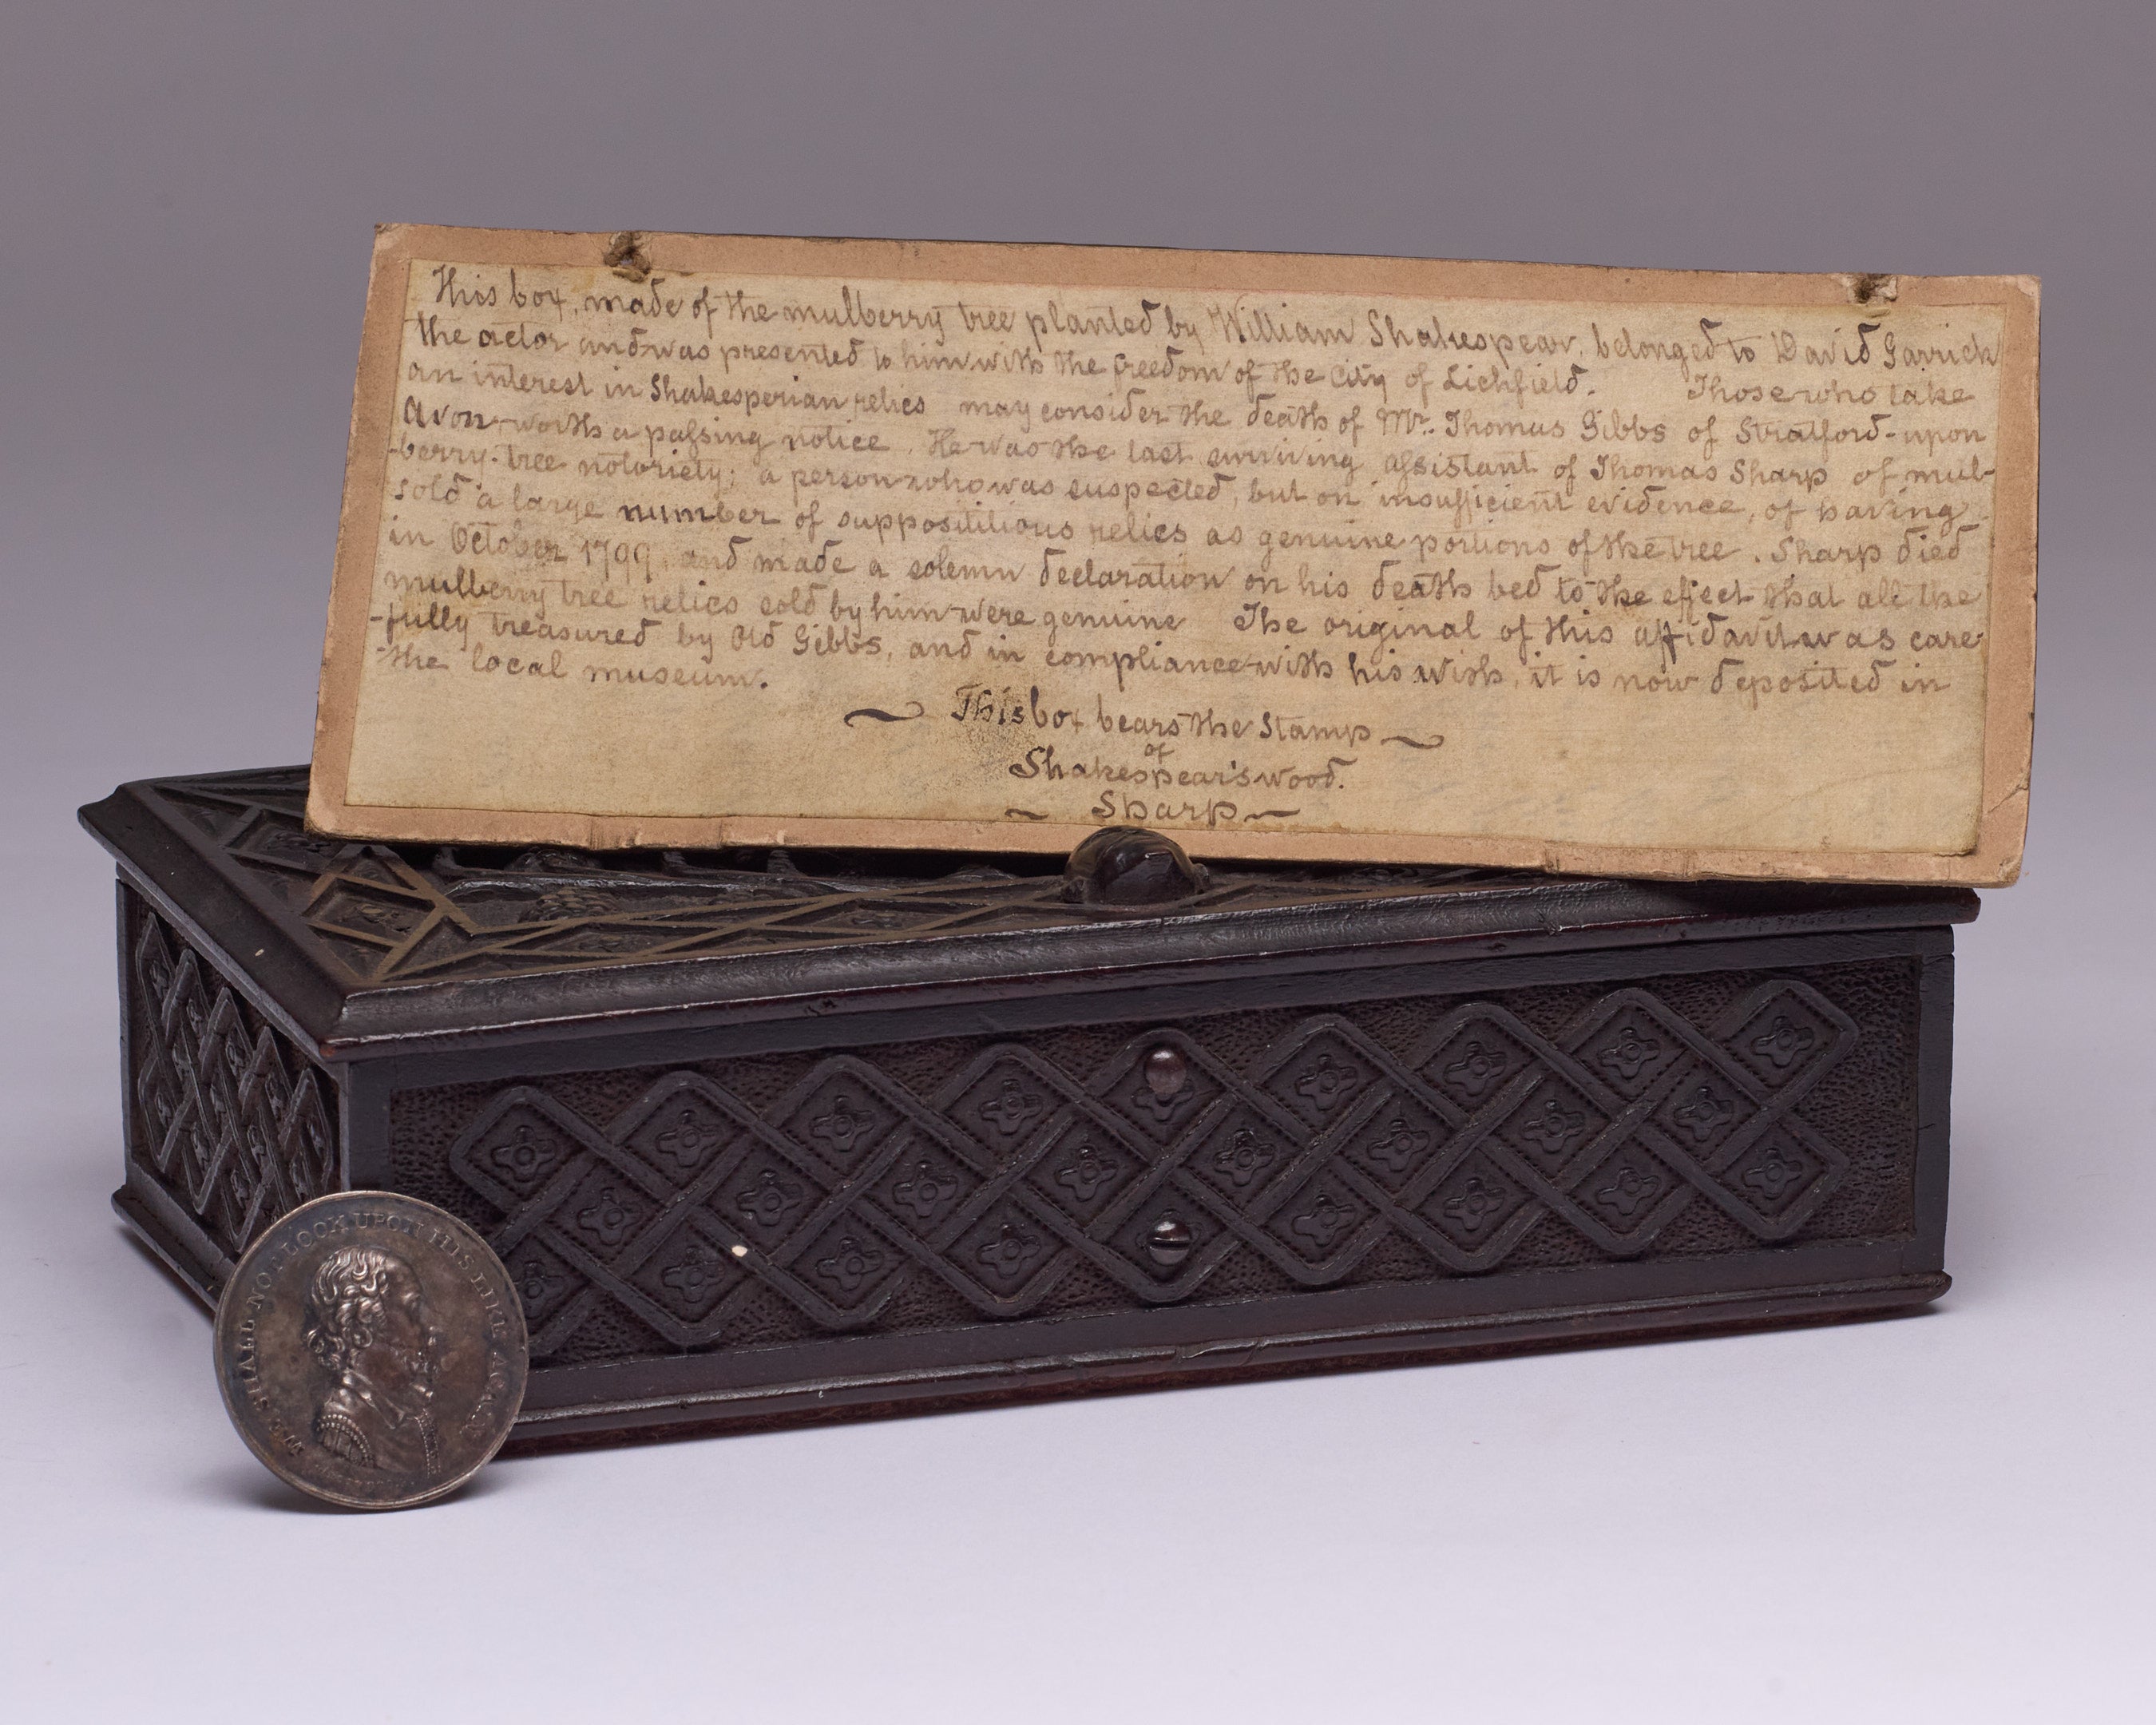 This box, made of the mulberry tree planted by William Shakespear, belonged to David Garrick
the actor and was presented to him with the freedom of the City of Lichfield. Those who take
an interest in Shakesperian relics may consider the death of Mr. Thomas Gibbs of Stratford-upon
Avon worth a passing notice. He was the last surviving assistant of Thomas Sharp of mul-
-berry-tree notoriety; a person who was suspected, but on insufficient evidence, of having
sold a large number of supposititious relics as genuine portions of the tree. Sharp died
in October 1799, and made a solemn declaration on his death bed to the effect that all the
mulberry tree relics sold by him were genuine The original of this affidavit was care
-fully treasured by Old Gibbs, and in compliance with his wish, it is now deposited in
the local museum.
~ This box bears the Stamp ~
of
Shakespear's wood.
~ Sharp ~
WE SHALL NOT LOOK UPON HIS LIKE AGAIN